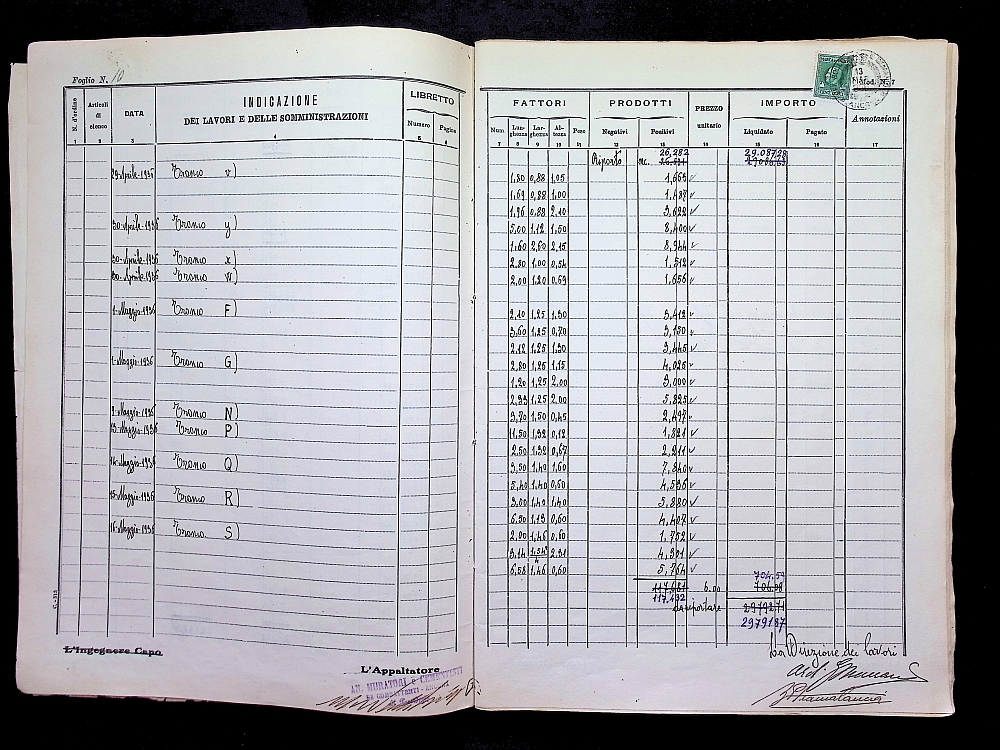 Foglio N. 10
N. d'ordine
Articoli di elenco
DATA
INDICAZIONE
DEI LAVORI E DELLE SOMMINISTRAZIONI
LIBRETTO
Numero Pagina
1 2 3 4 5 6
29 Aprile 1936 Tronco v)
30 Aprile 1936 Tronco y)
30 Aprile 1936 Tronco x)
30 Aprile 1936 Tronco w)
1 Maggio 1936 Tronco F)
1 Maggio 1936 Tronco G)
2 Maggio 1936 Tronco N)
13 Maggio 1936 Tronco P)
14 Maggio 1936 Tronco Q)
15 Maggio 1936 Tronco R)
16 Maggio 1936 Tronco S)
L'Ingegnere Capo
L'Appaltatore
Mod. N. 7
FATTORI PRODOTTI PREZZO unitario IMPORTO Annotazioni
Num Lunghezza Larghezza Altezza Peso Negativi Positivi Liquidato Pagato
7 8 9 10 11 12 13 14 15 16 17
Riporto mc. 26,282 29.087,28
1,80 0,88 1,05 1,663
1,69 0,88 1,00 1,487
1,96 0,88 2,10 3,622
5,00 1,12 1,50 8,400
1,60 2,60 2,15 8,944
2,80 1,00 0,54 1,512
2,00 1,20 0,69 1,656
2,10 1,25 1,30 3,412
3,60 1,25 0,70 3,150
2,12 1,25 1,30 3,445
2,80 1,25 1,15 4,025
1,20 1,25 2,00 3,000
2,33 1,25 2,00 5,825
3,70 1,50 0,45 2,497
11,50 1,32 0,12 1,821
2,50 1,32 0,67 2,211
3,50 1,40 1,60 7,840
5,40 1,40 0,60 4,536
3,00 1,40 1,40 5,880
6,50 1,13 0,60 4,407
2,00 1,46 0,60 1,752
3,14 2,31 4,301
6,58 1,46 0,60 5,764
704,59
6.00
117,432
a riportare
2979187
La Direzione dei lavori